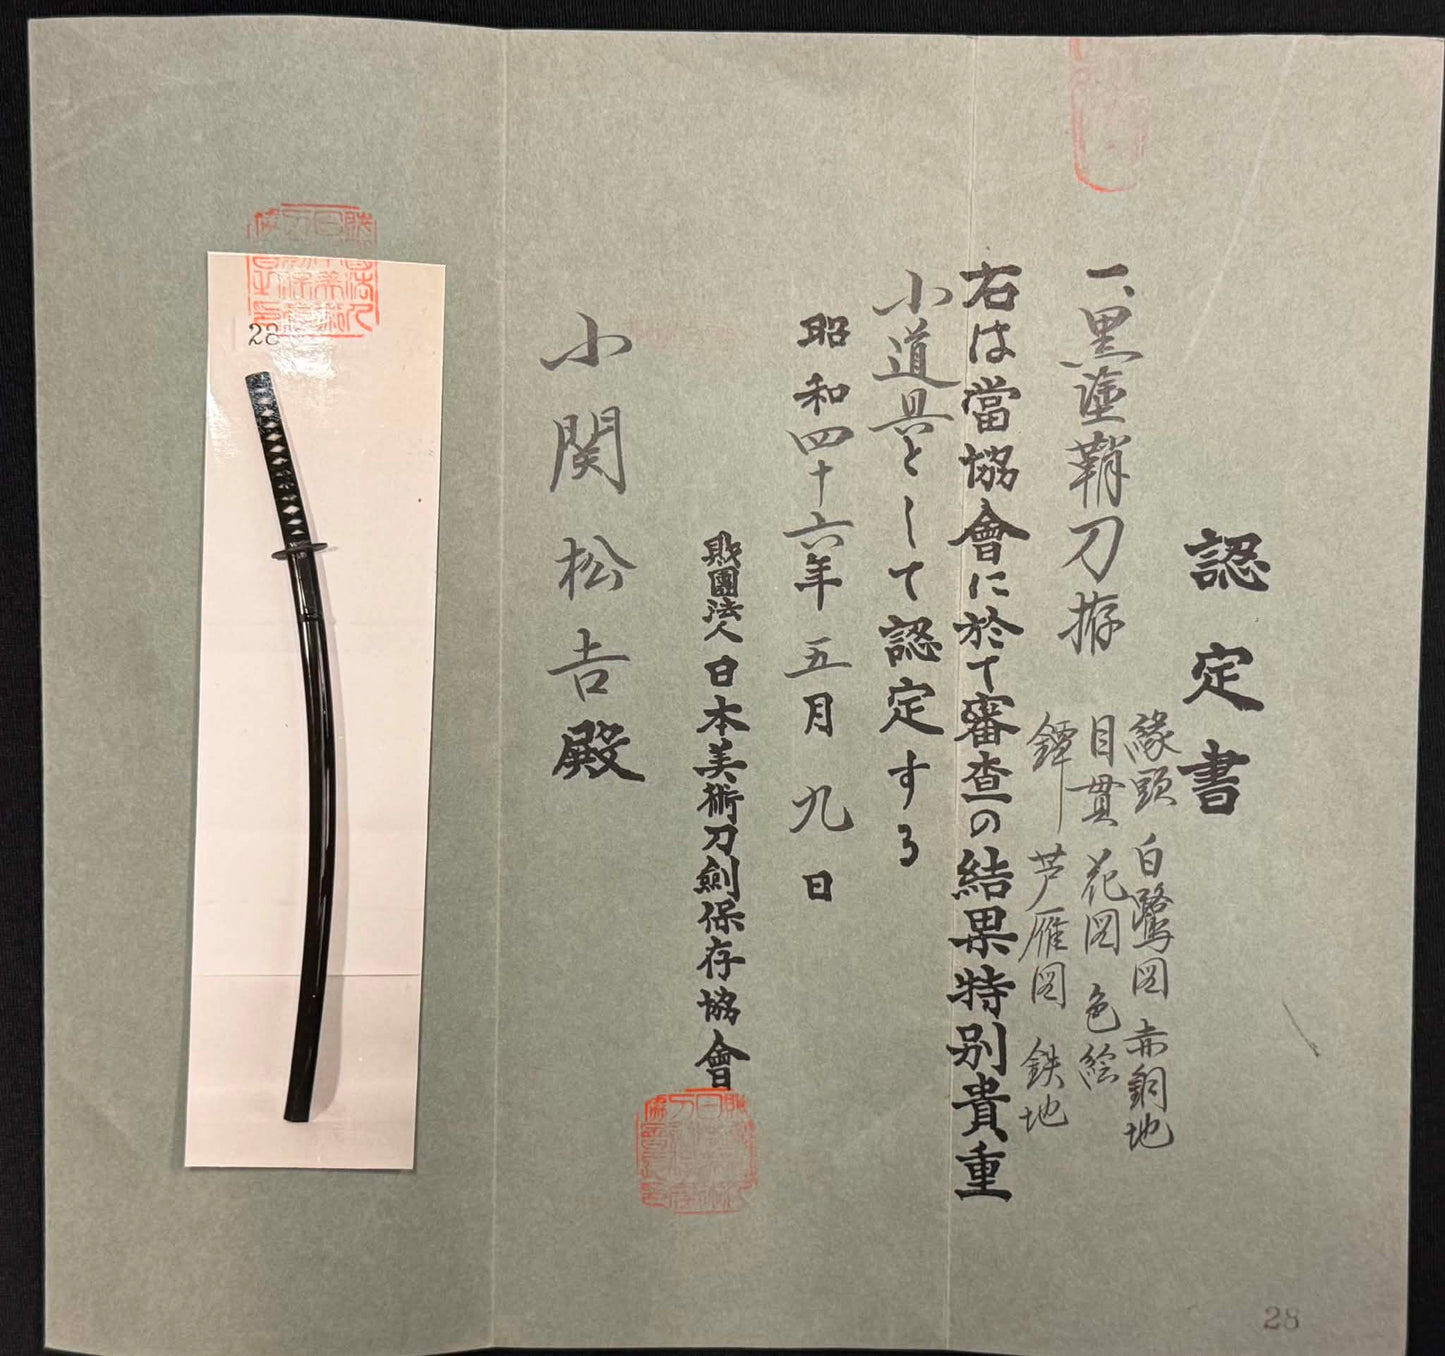 認定書
一、黒塗鞘刀拵
縁頭 白鷺図 赤銅地
目貫 花図 色絵
鐔 芦雁図 鉄地
右は當協會に於て審査の結果特別貴重
小道具として認定する
昭和四十六年五月九日
財團法人日本美術刀劍保存協會
小関松吉殿
28
28